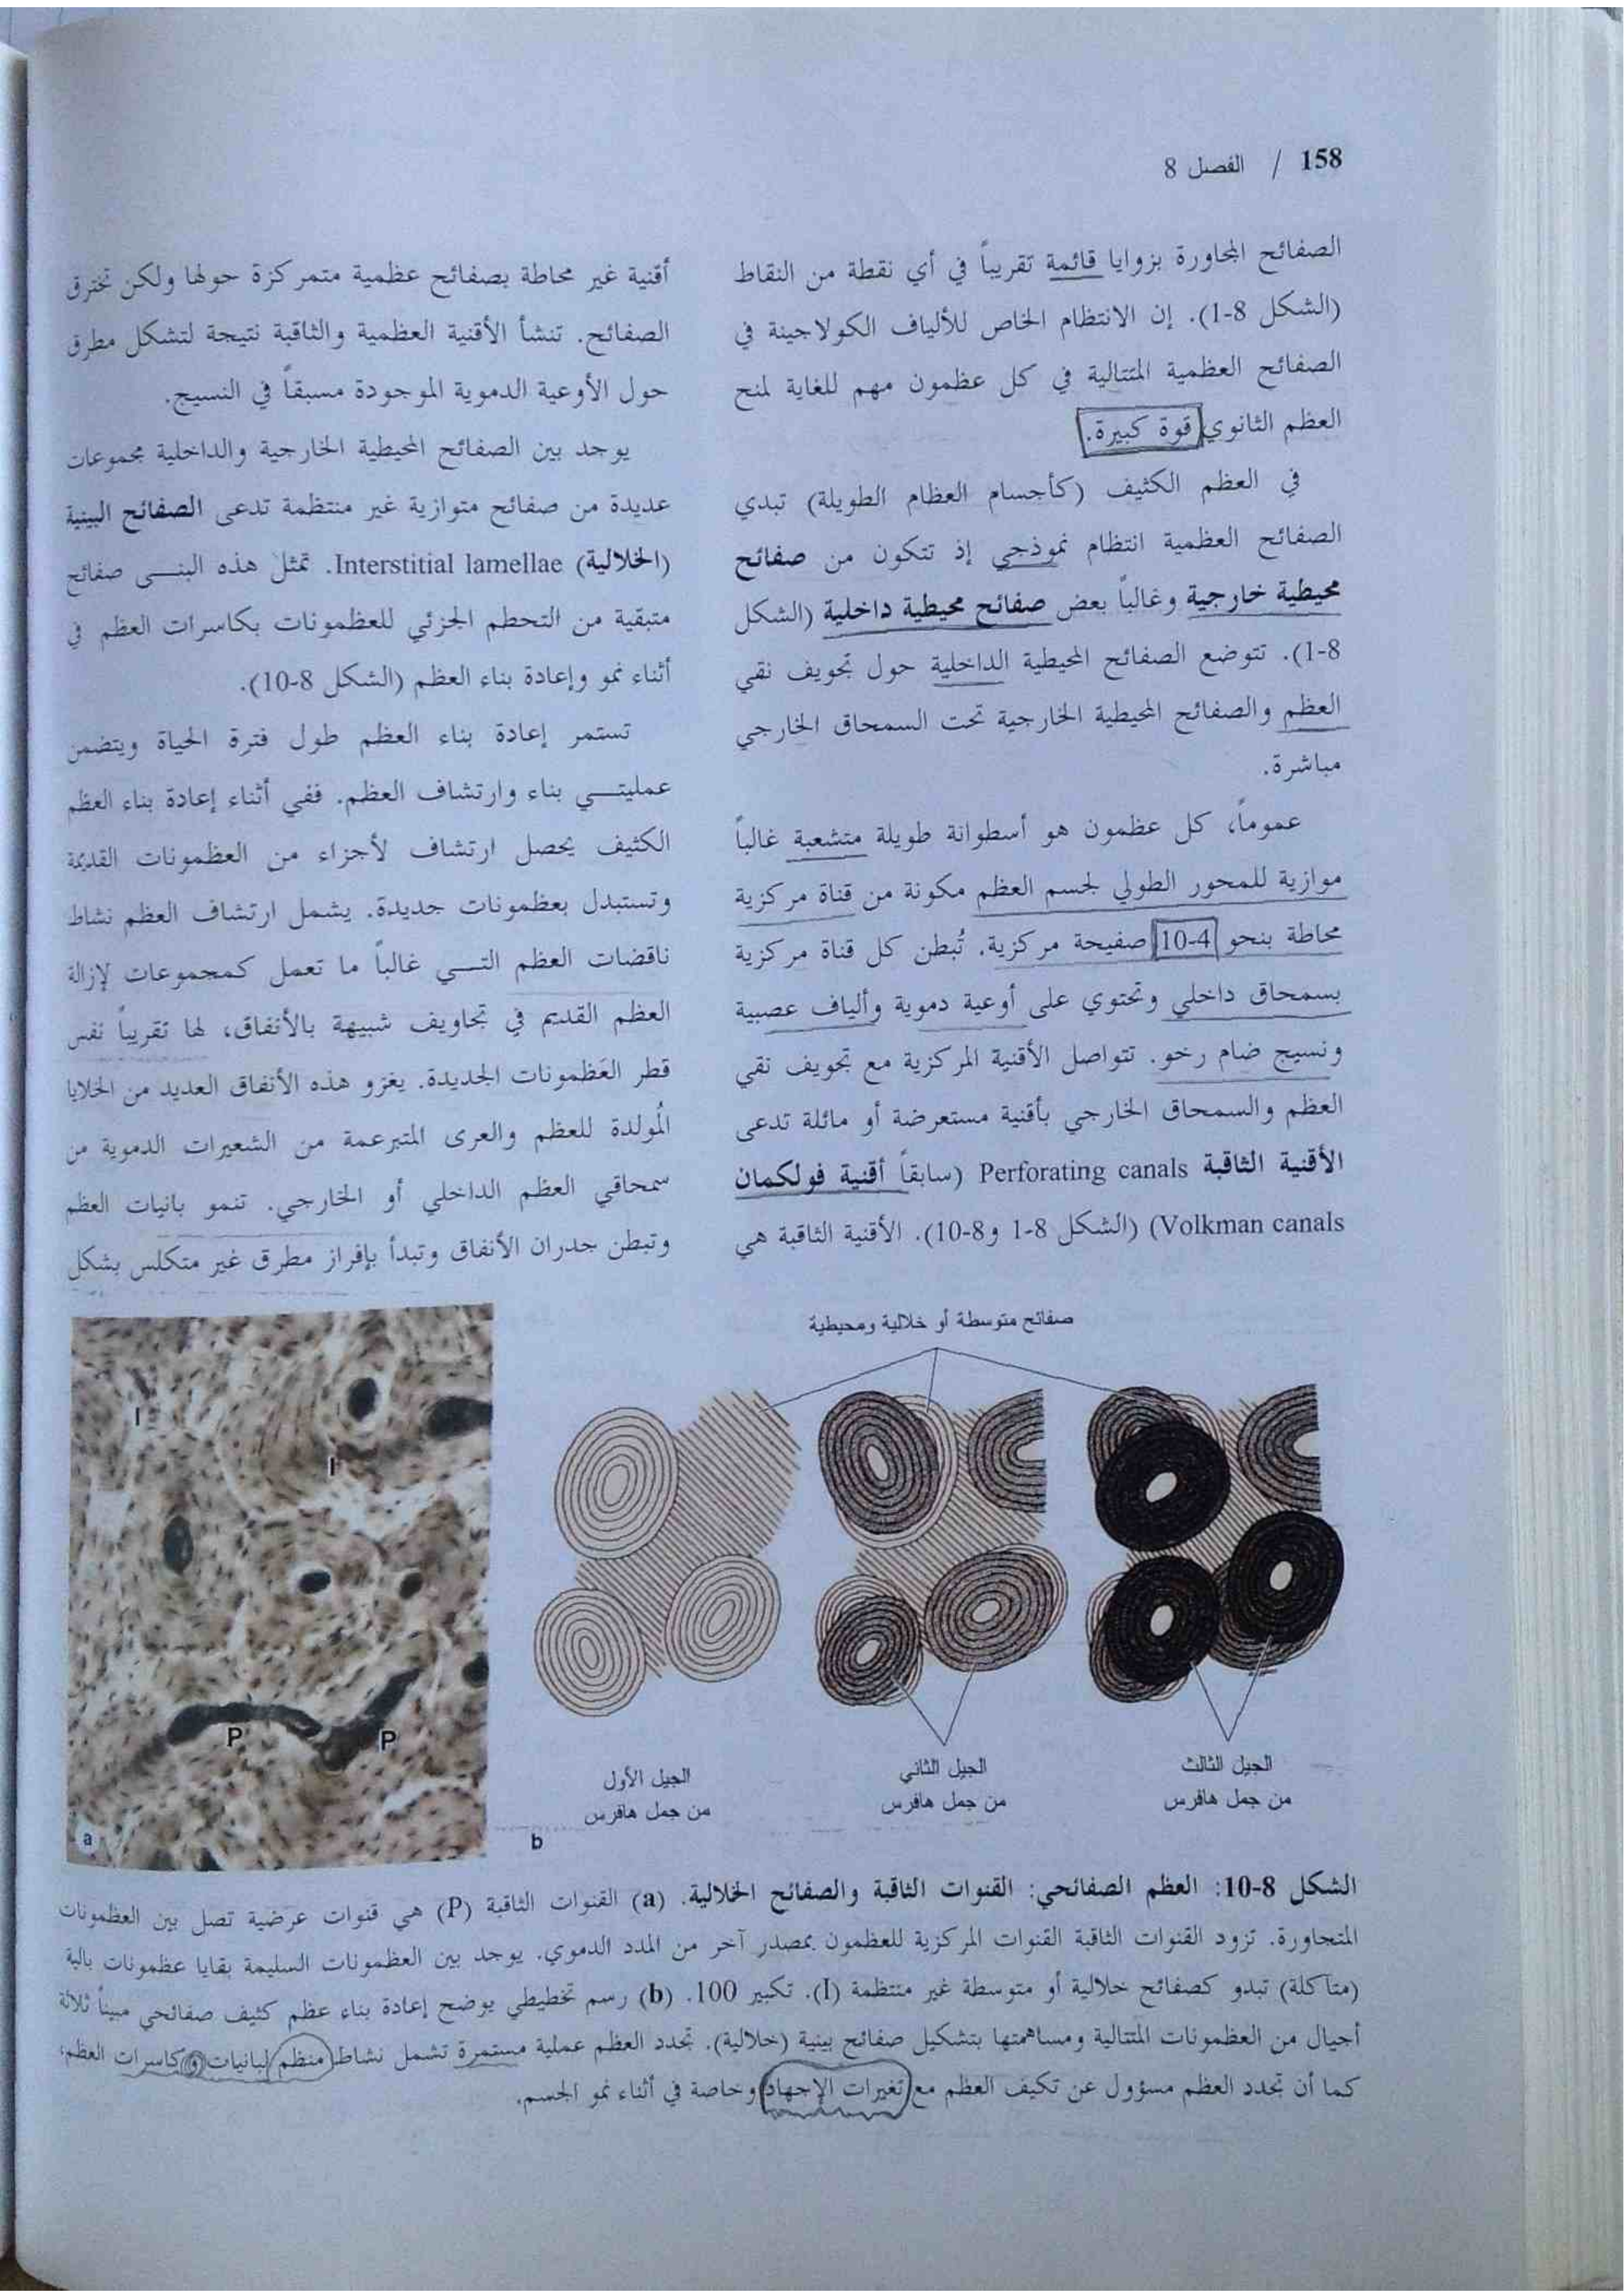 158 / الفصل 8
الصفائح المجاورة بزوايا قائمة تقريباً في أي نقطة من النقاط
(الشكل 8-1). إن الانتظام الخاص للألياف الكولاجينة في
الصفائح العظمية المتتالية في كل عظمون مهم للغاية لمنح
العظم الثانوي قوة كبيرة.
في العظم الكثيف (كأجسام العظام الطويلة) تبدي
الصفائح العظمية انتظام نموذجي إذ تتكون من صفائح
محيطية خارجية وغالباً بعض صفائح محيطية داخلية (الشكل
8-1). تتوضع الصفائح المحيطية الداخلية حول تجويف نقي
العظم والصفائح المحيطية الخارجية تحت السمحاق الخارجي
مباشرة.
عموماً، كل عظمون هو أسطوانة طويلة متشعبة غالباً
موازية للمحور الطولي لجسم العظم مكونة من قناة مركزية
محاطة بنحو 4-10 صفيحة مركزية. تُبطن كل قناة مركزية
بسمحاق داخلي وتحتوي على أوعية دموية وألياف عصبية
ونسيج ضام رخو. تتواصل الأقنية المركزية مع تجويف نقي
العظم والسمحاق الخارجي بأقنية مستعرضة أو مائلة تدعى
الأقنية الثاقبة Perforating canals (سابقاً أقنية فولكمان
Volkman canals) (الشكل 8-1 و8-10). الأقنية الثاقبة هي
أقنية غير محاطة بصفائح عظمية متمركزة حولها ولكن تخترق
الصفائح. تنشأ الأقنية العظمية والثاقبة نتيجة لتشكل مطرق
حول الأوعية الدموية الموجودة مسبقاً في النسيج.
يوجد بين الصفائح المحيطية الخارجية والداخلية مجموعات
عديدة من صفائح متوازية غير منتظمة تدعى الصفائح البينية
(الخلالية) Interstitial lamellae. تمثل هذه البنى صفائح
متبقية من التحطم الجزئي للعظمونات بكاسرات العظم في
أثناء نمو وإعادة بناء العظم (الشكل 8-10).
تستمر إعادة بناء العظم طول فترة الحياة ويتضمن
عمليتي بناء وارتشاف العظم. ففي أثناء إعادة بناء العظم
الكثيف يحصل ارتشاف لأجزاء من العظمونات القديمة
وتستبدل بعظمونات جديدة. يشمل ارتشاف العظم نشاط
ناقضات العظم التي غالباً ما تعمل كمجموعات لإزالة
العظم القديم في تجاويف شبيهة بالأنفاق، لها تقريباً نفس
قطر العَظمونات الجديدة. يغزو هذه الأنفاق العديد من الخلايا
المُولدة للعظم والعرى المتبرعمة من الشعيرات الدموية من
سمحاقي العظم الداخلي أو الخارجي. تنمو بانيات العظم
وتبطن جدران الأنفاق وتبدأ بإفراز مطرق غير متكلس بشكل
صفائح متوسطة أو خلالية ومحيطية
I
I
P
P
a
الجيل الأول
من جمل هافرس
الجيل الثاني
من جمل هافرس
الجيل الثالث
من جمل هافرس
b
الشكل 8-10: العظم الصفائحي: القنوات الثاقبة والصفائح الخلالية. (a) القنوات الثاقبة (P) هي قنوات عرضية تصل بين العظمونات
المتجاورة. تزود القنوات الثاقبة القنوات المركزية للعظمون بمصدر آخر من المدد الدموي. يوجد بين العظمونات السليمة بقايا عظمونات بالية
(متآكلة) تبدو كصفائح خلالية أو متوسطة غير منتظمة (I). تكبير 100. (b) رسم تخطيطي يوضح إعادة بناء عظم كثيف صفائحي مبيناً ثلاثة
أجيال من العظمونات المتتالية ومساهمتها بتشكيل صفائح بينية (خلالية). تجدد العظم عملية مستمرة تشمل نشاط منظم لبانيات وكاسرات العظم،
كما أن تجدد العظم مسؤول عن تكيف العظم مع تغيرات الإجهاد وخاصة في أثناء نمو الجسم.